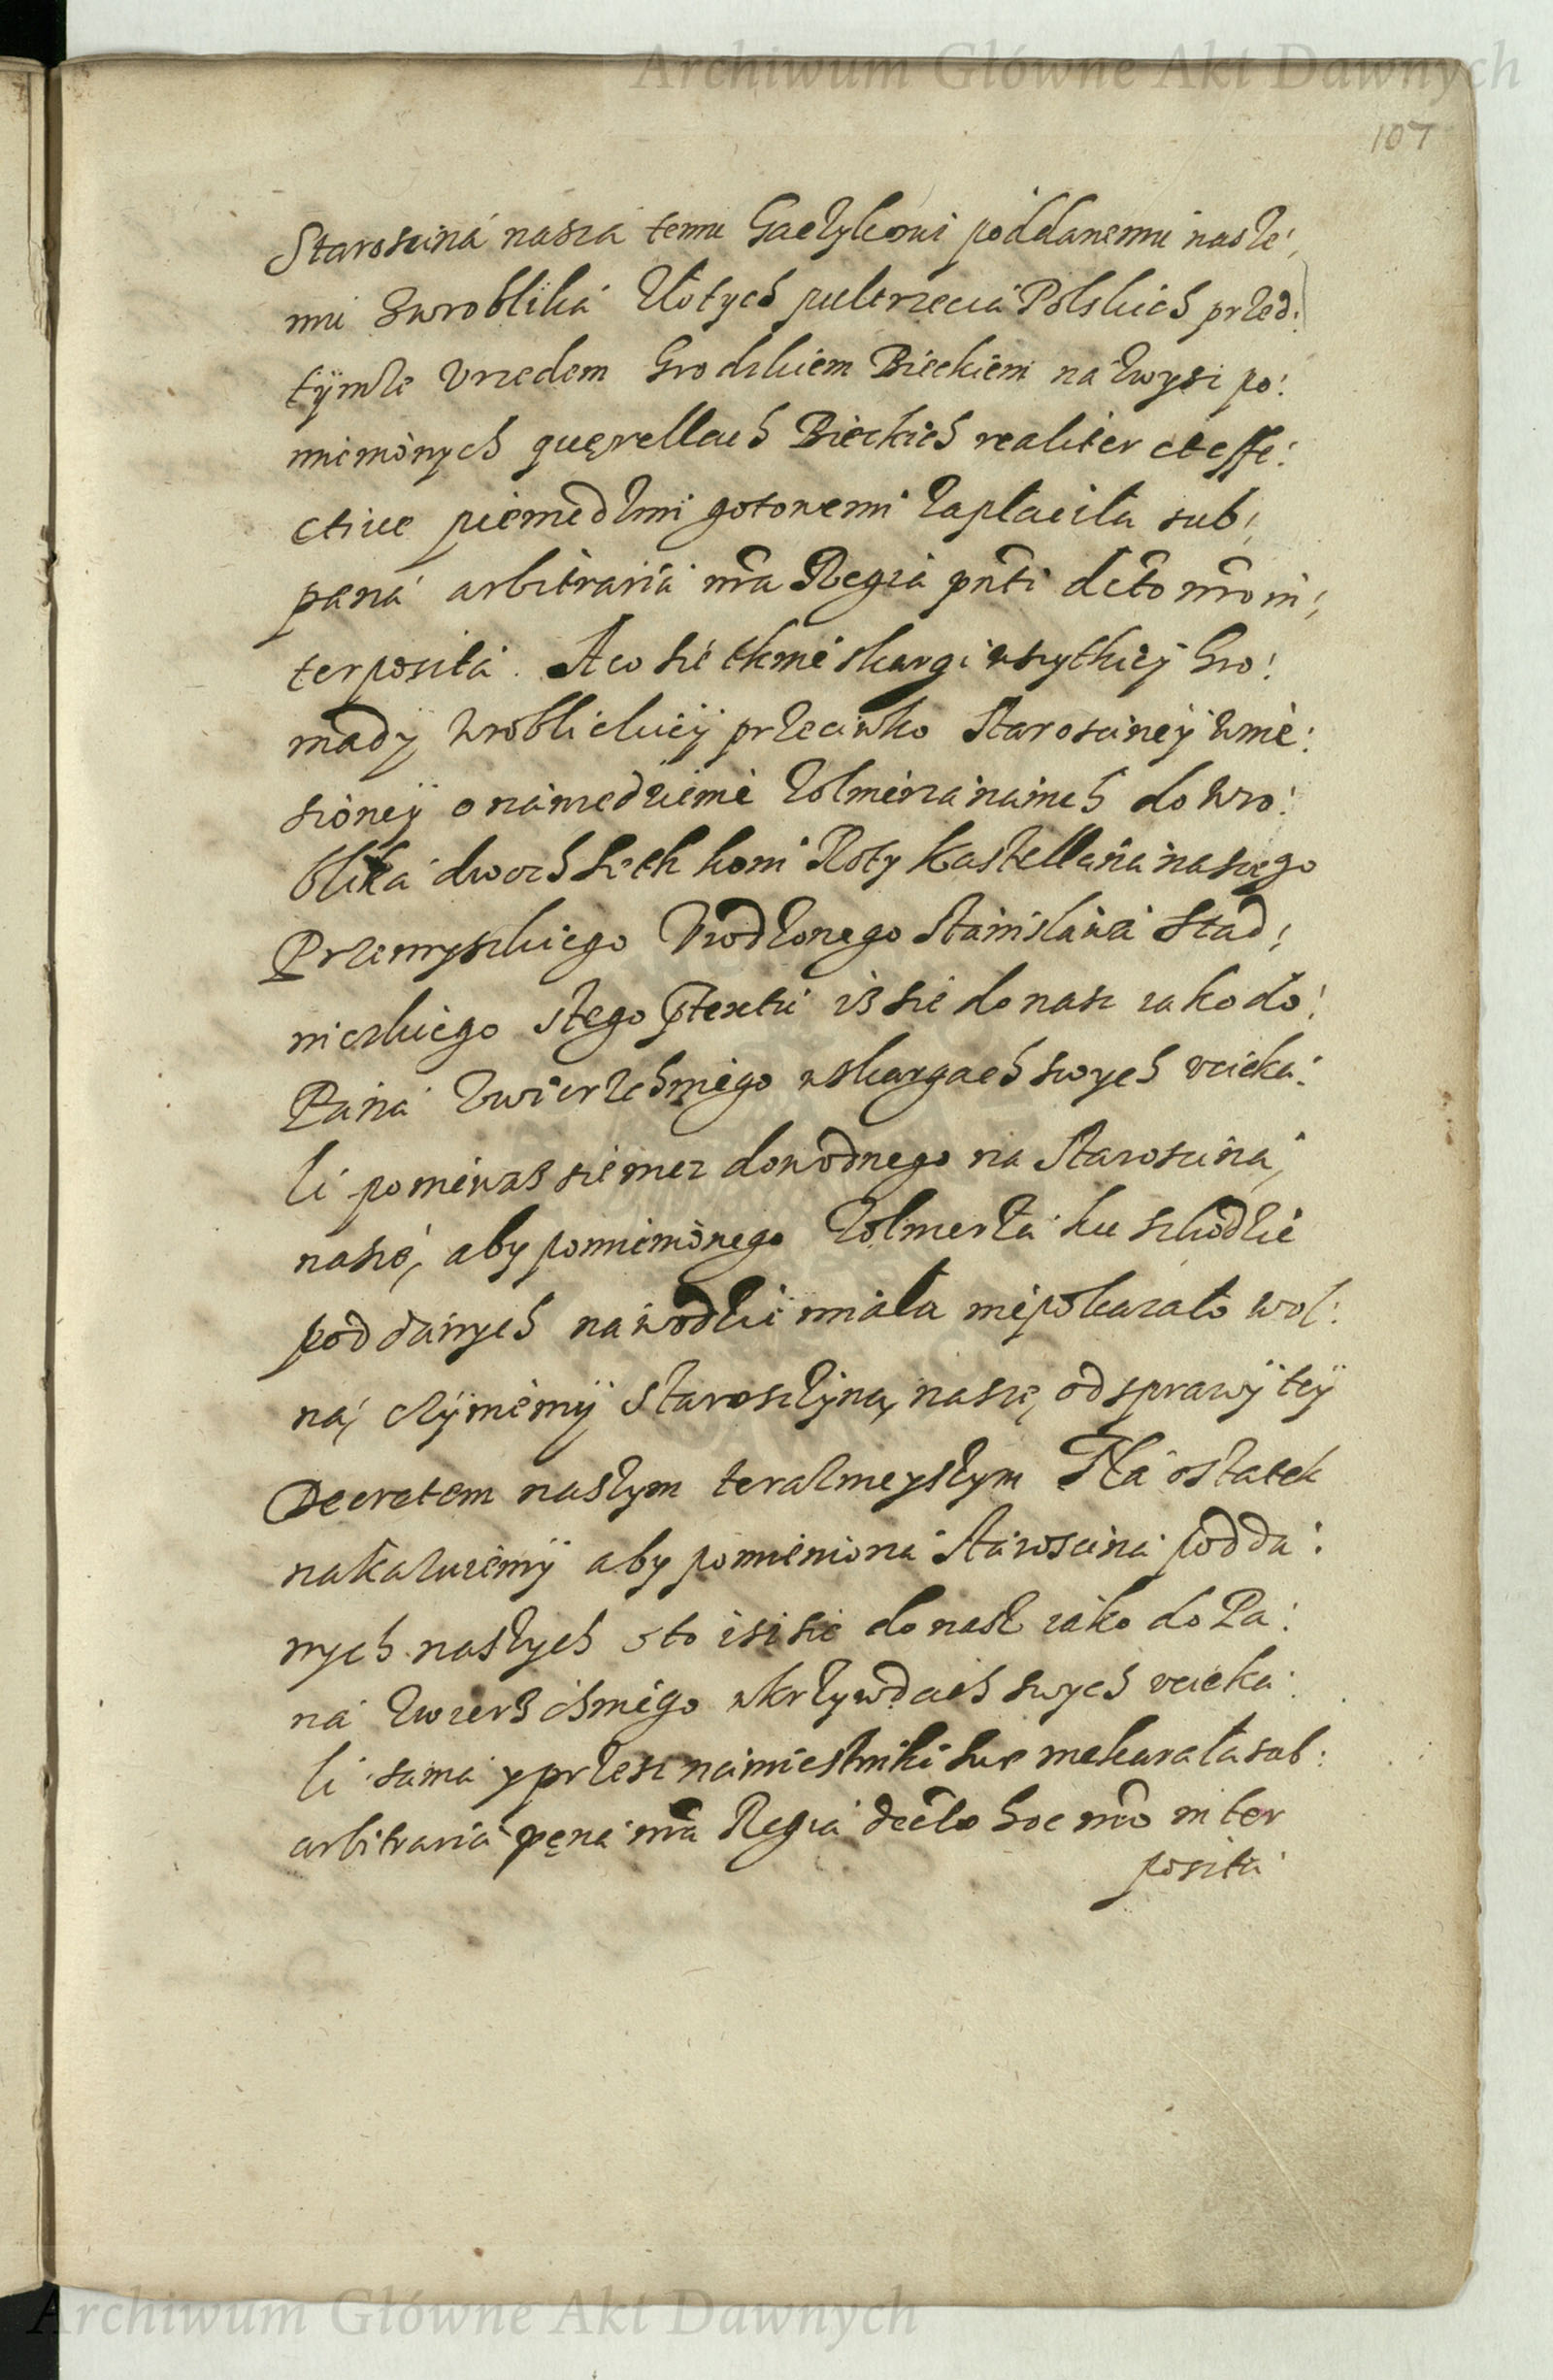 Archiwum Główne Akt Dawnych
107
Starosciná nasza temu Gaczykowi poddanemu nasze¡
mu zwroblika Złotych pułtrzecia Polskich przed:
tÿmże Vrzedem Grodzkiem Bieckiem na zwysz po:
mienionych querellach Bieckich realiter et effe:
ctiue pieniedzmi gotowemi zapłaciła sub¡
pæná arbitraria nrã Regia pnti dcto nrõ in¡
terposita. A co sie tknie skargi wszytkiej Gro:
mady wroblickieÿ przeciwko Staroscineÿ wnie:
sioneÿ o nawiedzienie Zolnierza naniech do wro:
blika dwoch set koni Roty Kastellana naszego
Przemyskiego Vrodzonego Stanisława Stad¡
nickiego stego ptextu isz sie do nasz iako do:
Pana zwierzchniego wskargach swych vcieka:
li poniewasz sie niez dowodnego na Staroscina,
naszé, aby pomienionego Zolnierza ku szkodzie
poddanych nawodzic miała niepokazało wol:
ná, czÿniemÿ Staroszczÿną, naszę, od sprawÿ teÿ
Decretem naszym terazniejszym Na ostatek
nakazuiemÿ aby pomieniona Staroscina podda:
nych naszych oto isz sie do nasz iako do Pa:
na zwierzchniego wkrzywdach swych vcieka:
li sama y przesz namiestniki swe niekarała sub:
arbitraria pęna nrã Regia dcto hoc nrõ inter
posita
Archiwum Główne Akt Dawnych